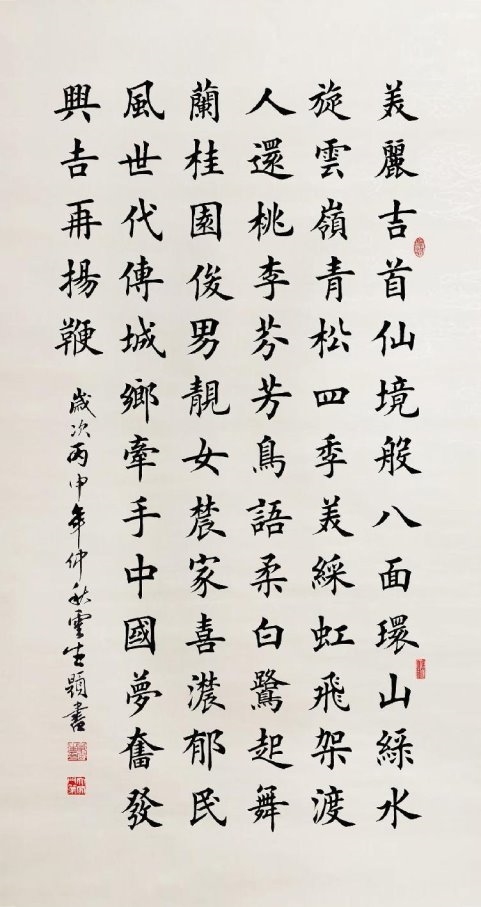 美麗吉首仙境般八面環山綵水
旋雲嶺青松四季美綵虹飛架渡
人還桃李芬芳鳥語柔白鷺起舞
蘭桂園俊男靚女農家喜濃郁民
風世代傳城鄉牽手中國夢奮發
興吉再揚鞭
歲次丙申年仲秋雲生題書